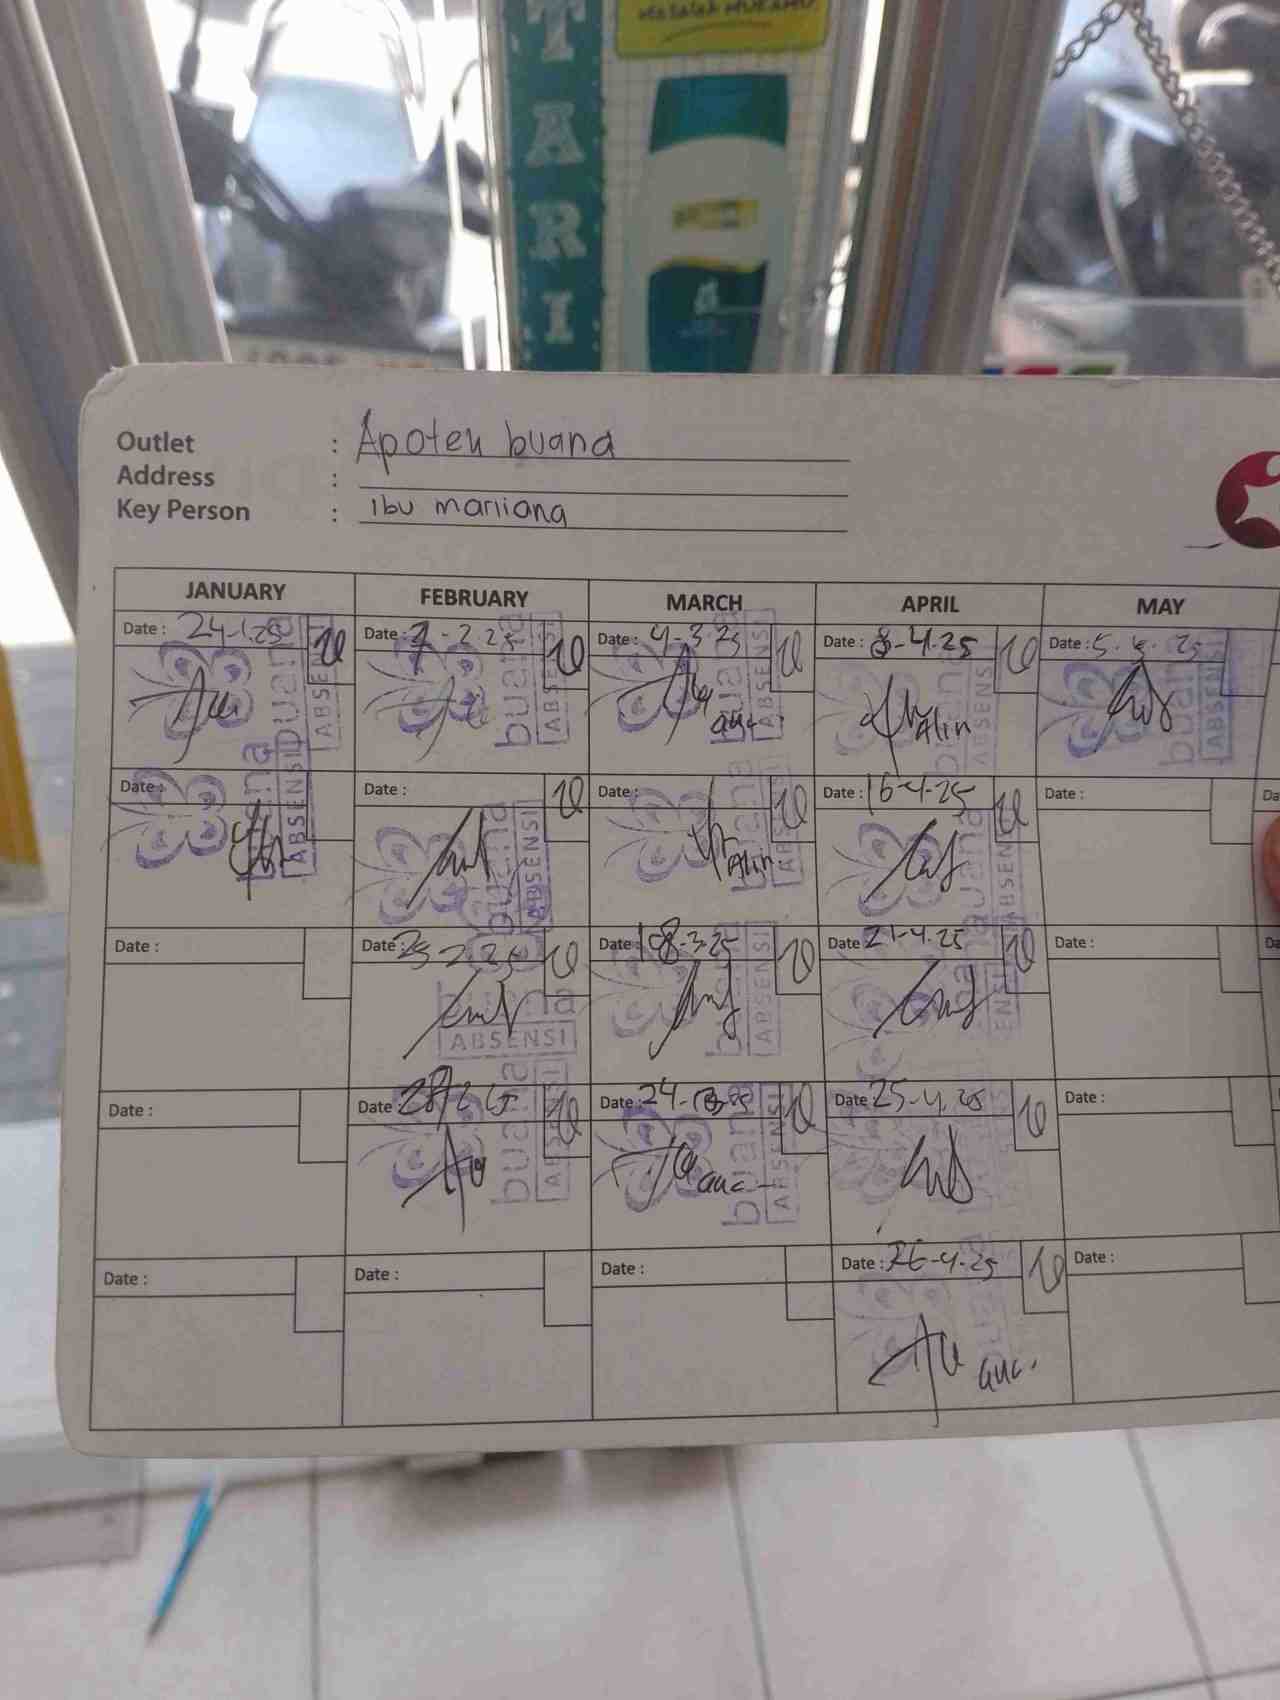 TARI
Masalah MUKAMU
Outlet : Apotek buana
Address :
Key Person : ibu marliana
JANUARY FEBRUARY MARCH APRIL MAY
Date : 24-1-25 Date : 7-2-25 Date : 4-3-25 Date : 8-4-25 Date : 5-5-25
buana ABSENSI buana ABSENSI buana ABSENSI Alin buana ABSENSI buana ABSENSI
Date : Date : Date : Date : 16-4-25 Date :
buana ABSENSI buana ABSENSI Alin buana ABSENSI buana ABSENSI
Date : Date : 25-2-25 Date : 18-3-25 Date : 21-4-25 Date :
buana ABSENSI buana ABSENSI buana ABSENSI
Date : Date : 28/2 25 Date : 24-3-25 Date : 25-4-25 Date :
buana ABSENSI buana ABSENSI
Date : Date : Date : Date : 26-4-25 Date :
buana